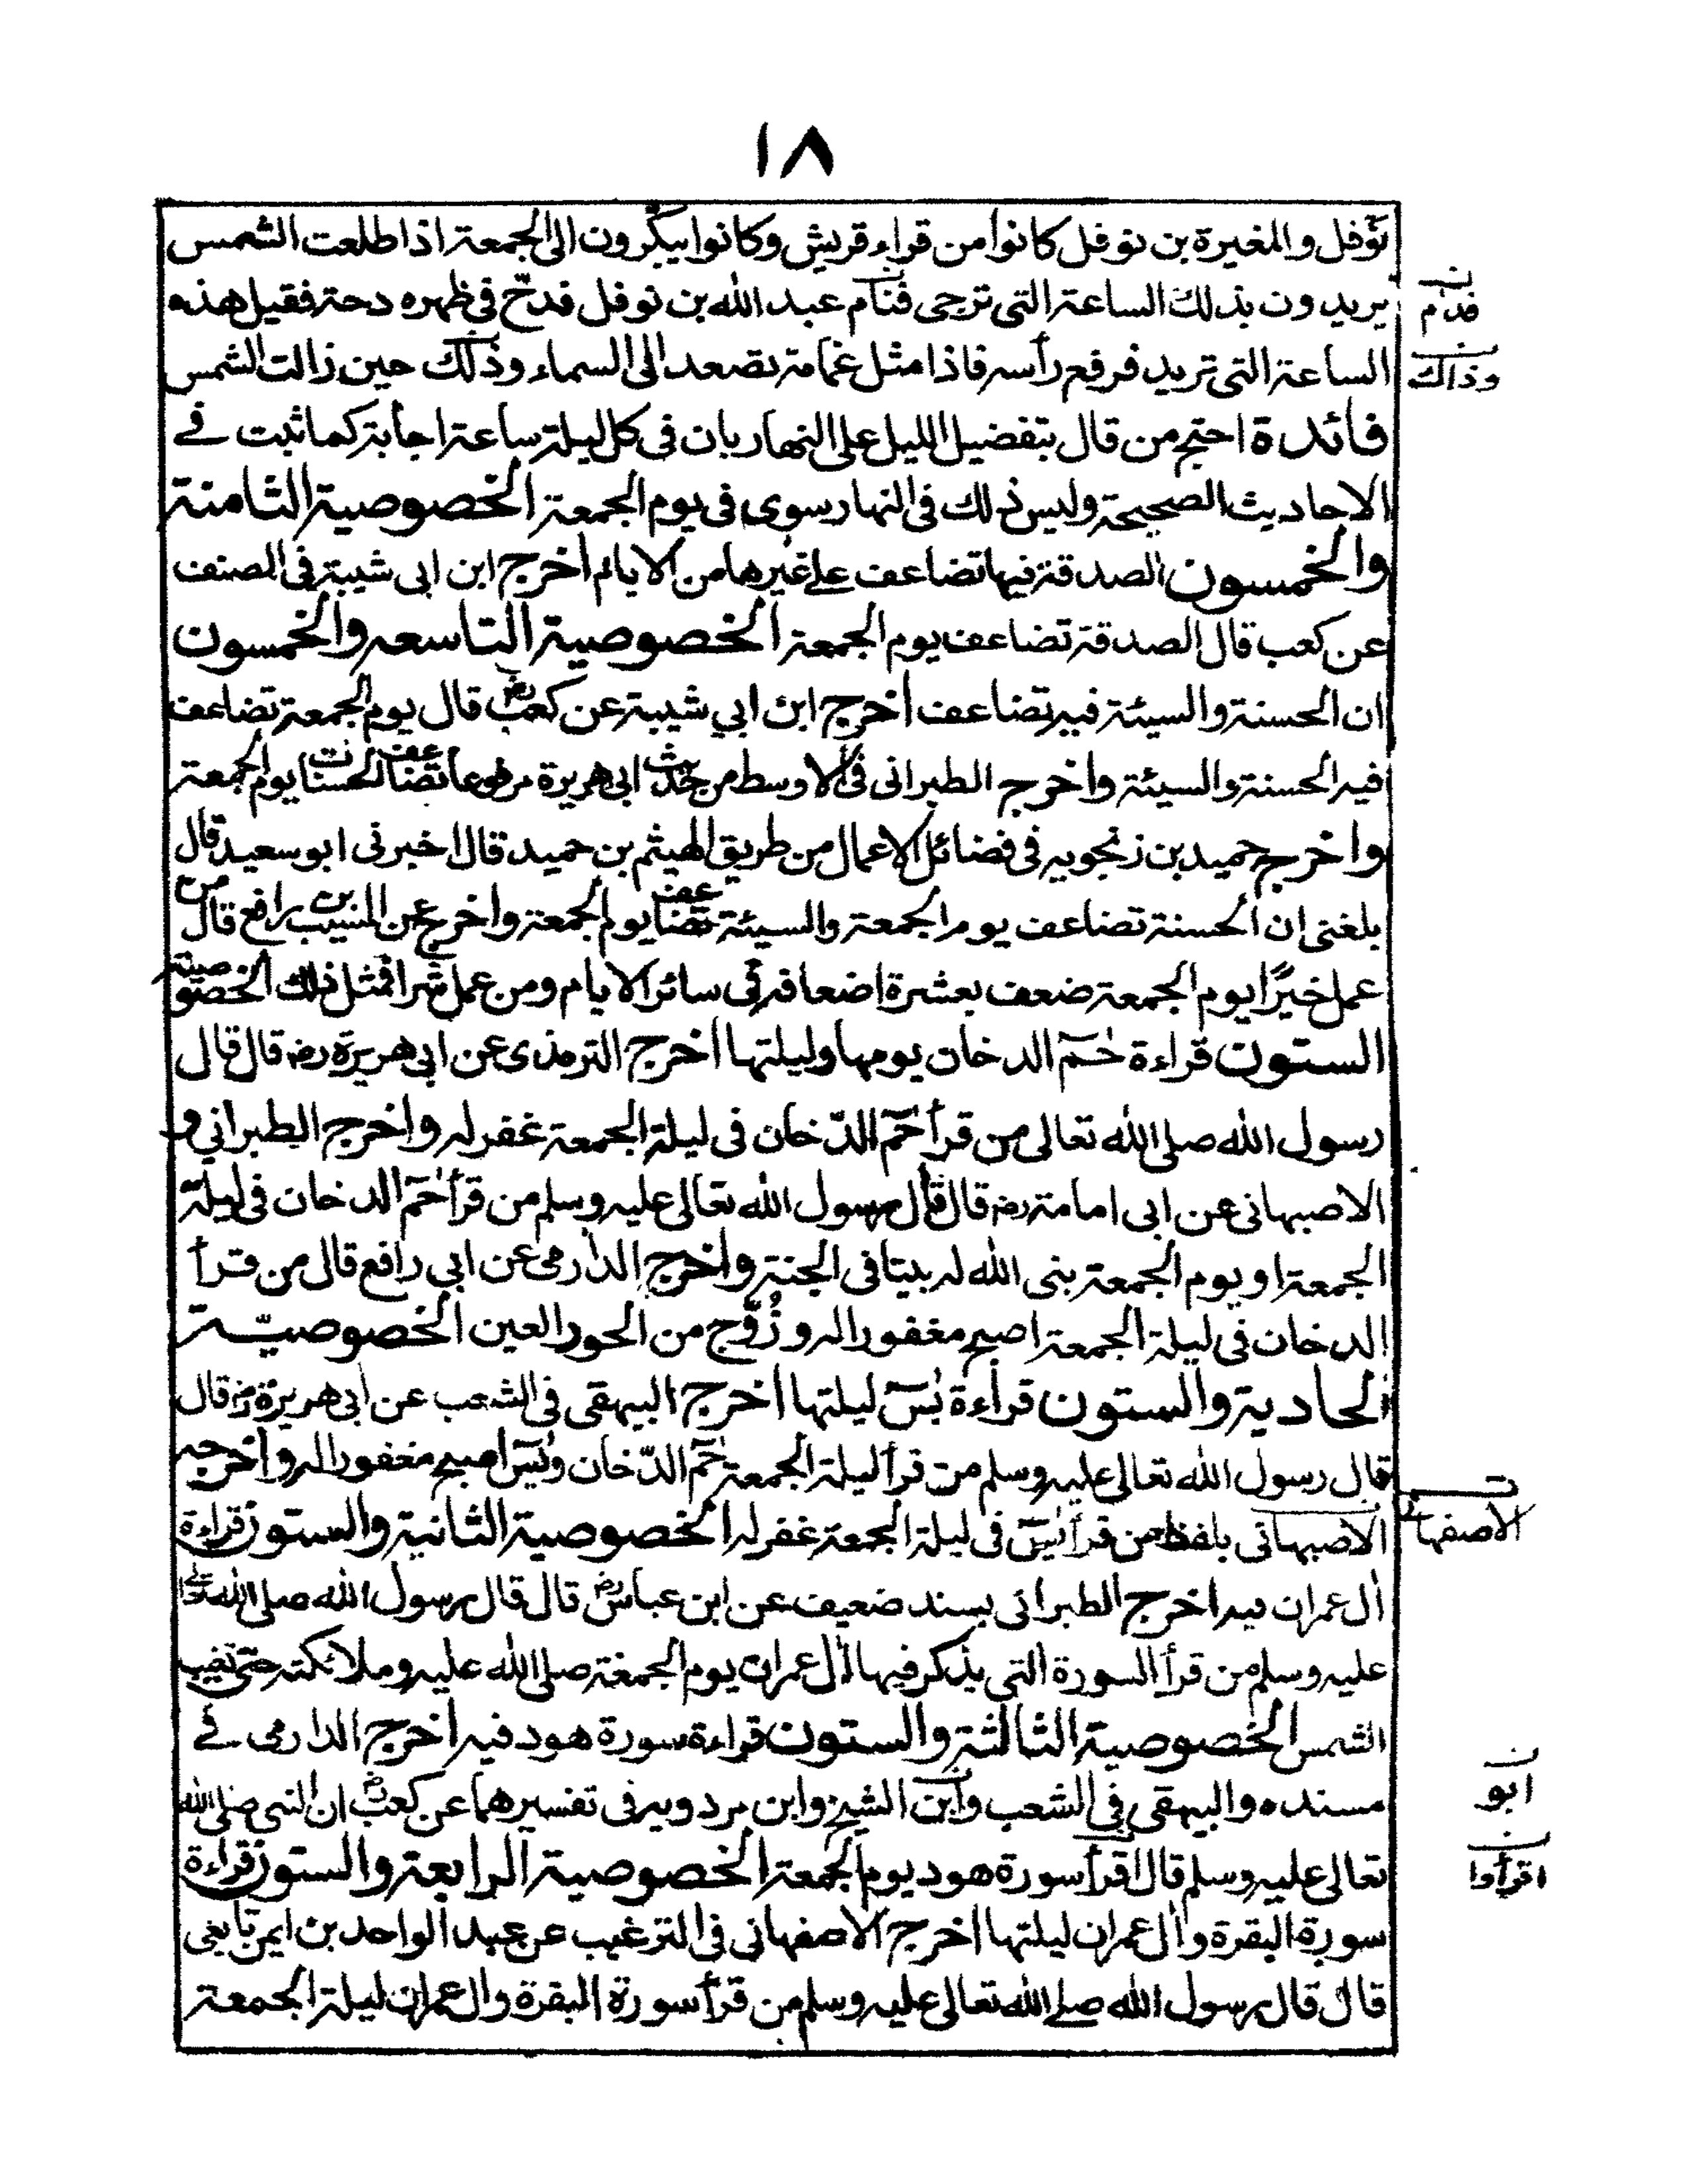 ١٨
نوفل والمغيرة بن نوفل كانوا من قراء قريش وكانوا يبكّرون الى الجمعة اذا طلعت الشمس
يريدون بذلك الساعة التى ترجى فنام عبد الله بن نوفل فدحّ فى ظهره دحة فقيل هذه
فدام
الساعة التى تريد فرفع رأسه فاذا مثل غمامة تصعد الى السماء وذلك حين زالت الشمس
وذالك
فائدة احتج من قال بتفضيل الليل على النهار بان فى كل ليلة ساعة اجابة كما ثبت فے
الاحاديث الصحيحة وليس ذلك فى النهار سوى فى يوم الجمعة الخصوصية الثامنة
والخمسون الصدقة فيها تضاعف على غيرها من الايام اخرج ابن ابى شيبة فى المصنف
عن كعب قال الصدقة تضاعف يوم الجمعة الخصوصية التاسعه والخمسون
ان الحسنة والسيئة فيه تضاعف اخرج ابن ابي شيبة عن كعبؓ قال يوم الجمعة تضاعف
فيه الحسنة والسيئة واخرج الطبرانى فى الاوسط من حديث ابى هريرة مرفوعا تضاعف الحسنات يوم الجمعة
واخرج حميد بن زنجويه فى فضائل الاعمال من طريق الهيثم بن حميد قال اخبرنى ابو سعيد قال
بلغنى ان الحسنة تضاعف يوم الجمعة والسيئة تضاعف يوم الجمعة واخرج عن المسيب بن رافع قال من
عمل خيرًا يوم الجمعة ضعف بعشرة اضعافه فى سائر الايام ومن عمل شرا فمثل ذلك الخصوصية
الستون قراءة حٰمٓ الدخان يومها وليلتها اخرج الترمذى عن ابى هريرة رضہ قال قال
رسول الله صلى الله تعالى من قرأ حٰمٓ الدّخان فى ليلة الجمعة غفر له واخرج الطبراني و
الاصبهانى عن ابى امامة رضہ قال قال رسول الله تعالى عليه وسلم من قرأ حٰمٓ الدخان فى ليلة
الجمعة او يوم الجمعة بنى الله له بيتا فى الجنة واخرج الدارمى عن ابي رافع قال من قرأ
الدخان فى ليلة الجمعة اصبح مغفورا له و زُوّج من الحور العين الخصوصيّة
الحادية والستون قراءة يٰسٓ ليلتها اخرج البيهقى فى الشعب عن ابى هريرة رضہ قال
قال رسول الله تعالى عليه وسلم من قرأ ليلة الجمعة حٰمٓ الدّخان ويٰسٓ اصبح مغفورا له واخرجه
الاصبهانى بلفظ من قرأ يٰسٓ فى ليلة الجمعة غفر له الخصوصية الثانية والستون قراءة
الاصفهانى
اٰل عمران فيه اخرج الطبرانى بسند ضعيف عن ابن عباسؓ قال قال رسول الله صلى الله تعالى
عليه وسلم من قرأ السورة التي يذكر فيها اٰل عمران يوم الجمعة صلى الله عليه وملائكته حتى تغيب
الشمس الخصوصية الثالثة والستون قراءة سورة هود فيه اخرج الدارمى فے
مسنده والبيهقى فى الشعب وابن الشيخ وابن مردويه فى تفسيرهما عن كعبؓ ان النبى صلى الله
ابو
تعالى عليه وسلم قال اقرأ سورة هود يوم الجمعة الخصوصية الرابعة والستون قراءة
اقرأوا
سورة البقرة واٰل عمران ليلتها اخرج الاصفهانى فى الترغيب عن عبد الواحد بن ايمن تابعى
قال قال رسول الله صلى الله تعالى عليه وسلم من قرأ سورة البقرة وال عمران ليلة الجمعة